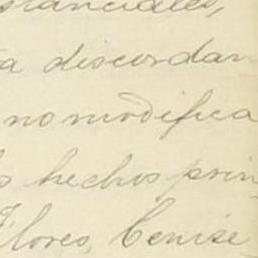 stanciales,
a discordan
no modifica
s hechos prin
Flores, Cenise